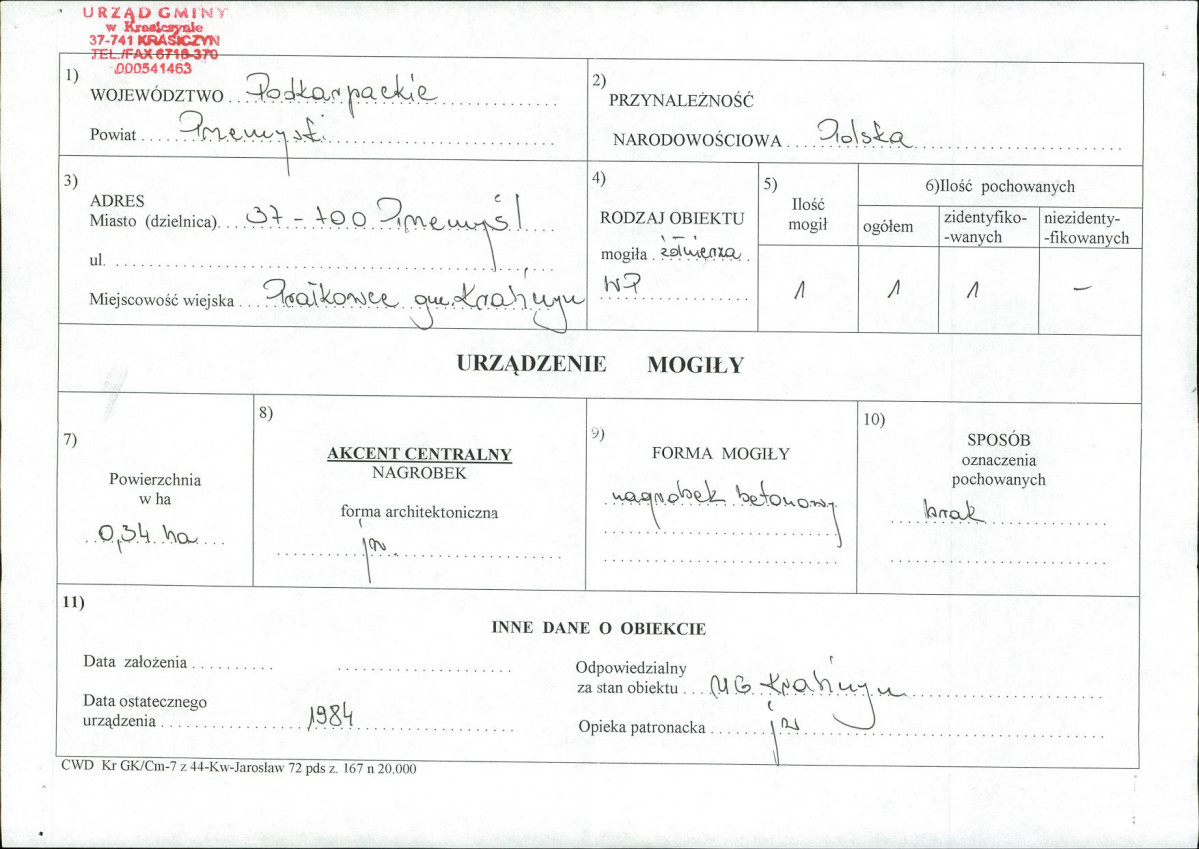 URZĄD GMINY
w Krasiczynie
37-741 KRASICZYN
TEL./FAX 6718-370
000541463
1)
WOJEWÓDZTWO Podkarpackie
Powiat Przemyski
2)
PRZYNALEŻNOŚĆ
NARODOWOŚCIOWA Polska
3)
ADRES
Miasto (dzielnica) 37-700 Przemyśl
ul.
Miejscowość wiejska Prałkowce gm. Krasiczyn
4)
RODZAJ OBIEKTU
mogiła żołnierza
WP
5)
Ilość
mogił
1
6)Ilość pochowanych
ogółem
1
zidentyfiko-
-wanych
1
niezidenty-
-fikowanych
–
URZĄDZENIE MOGIŁY
7)
Powierzchnia
w ha
0,34 ha
8)
AKCENT CENTRALNY
NAGROBEK
forma architektoniczna
jw.
9)
FORMA MOGIŁY
nagrobek betonowy
10)
SPOSÓB
oznaczenia
pochowanych
brak
11)
INNE DANE O OBIEKCIE
Data założenia
Data ostatecznego
urządzenia 1984
Odpowiedzialny
za stan obiektu UG Krasiczyn
Opieka patronacka jw
CWD Kr GK/Cm-7 z 44-Kw-Jarosław 72 pds z. 167 n 20.000